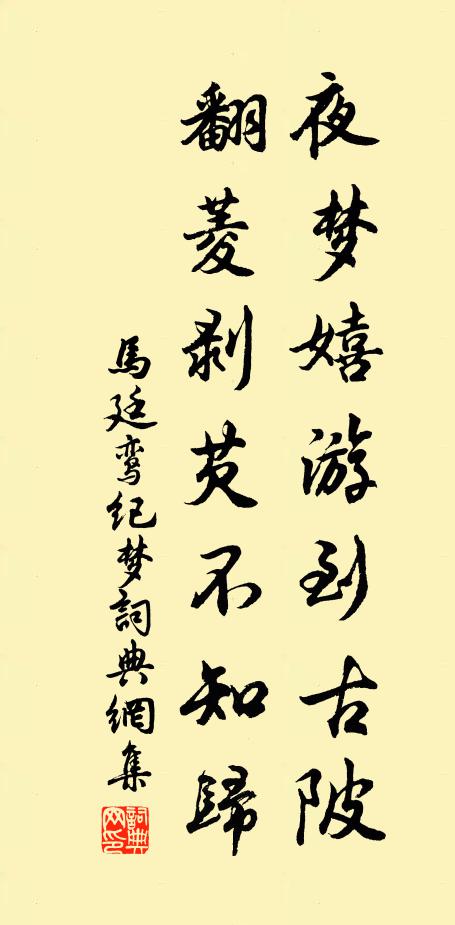 夜梦嬉游到古陂
翻菱剥芡不知歸
馬廷鸾纪梦詞典網集
詞典网印